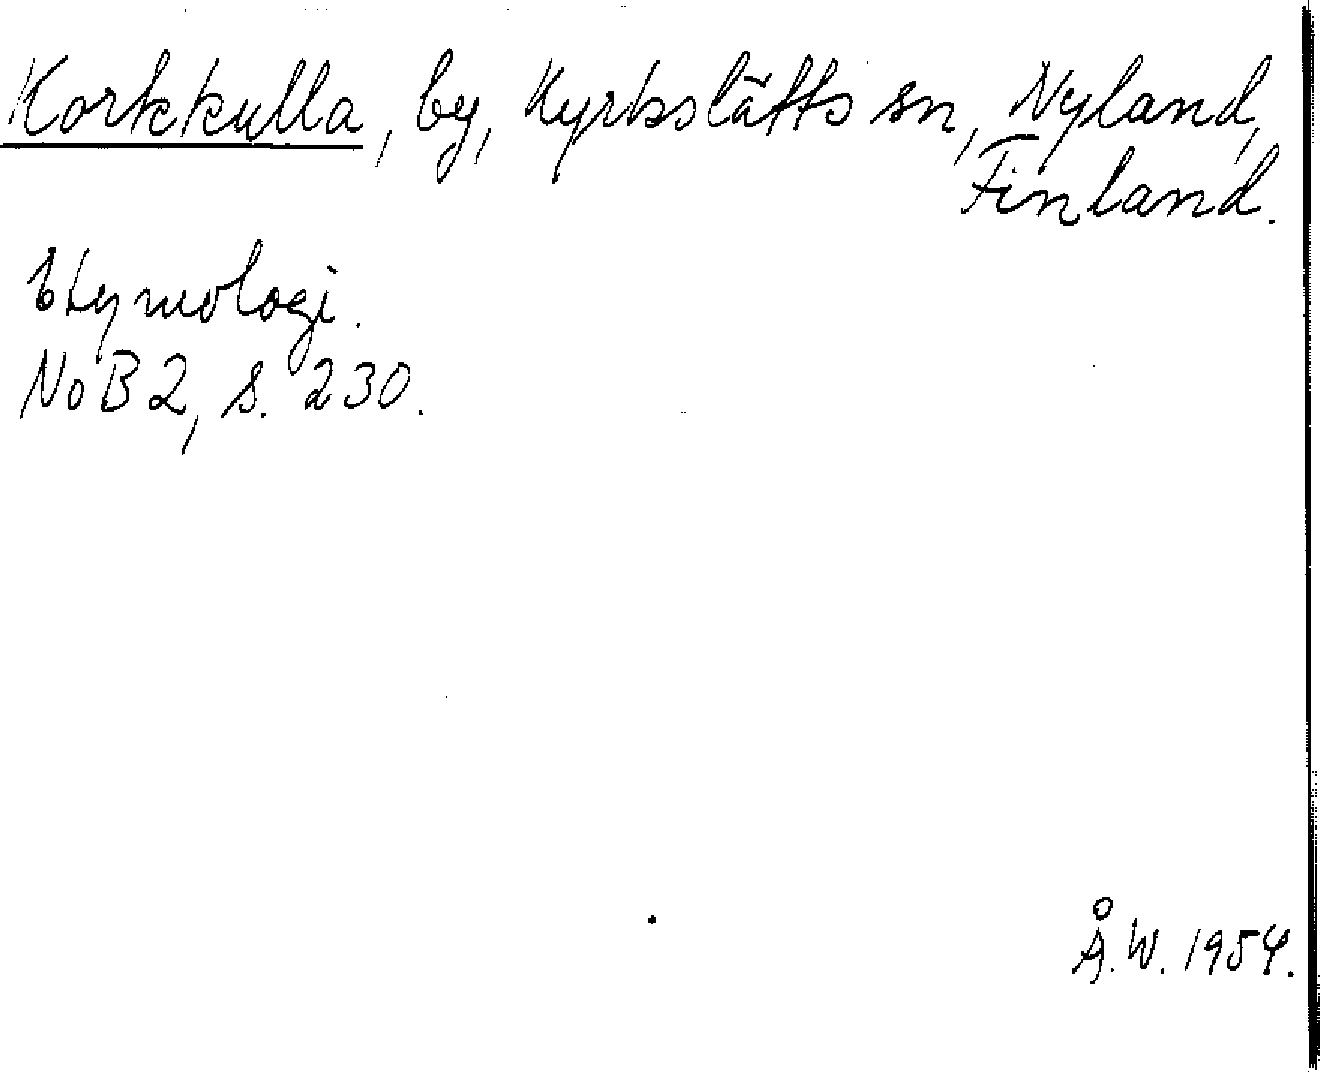 Korkkulla, by, Kyrkslätts sn, Nyland,
Finland.
Etymologi.
NoB 2, s. 230.
Å.W. 1954.